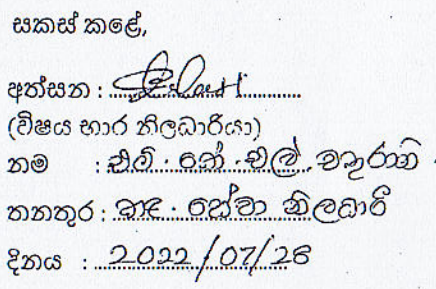 සකස් කළේ,
අත්සන :
(විෂය භාර නිලධාරියා)
නම : එම්. කේ. එල්. චතුරානි
තනතුර : කළ. සේවා නිලධාරී
දිනය : 2022/07/28